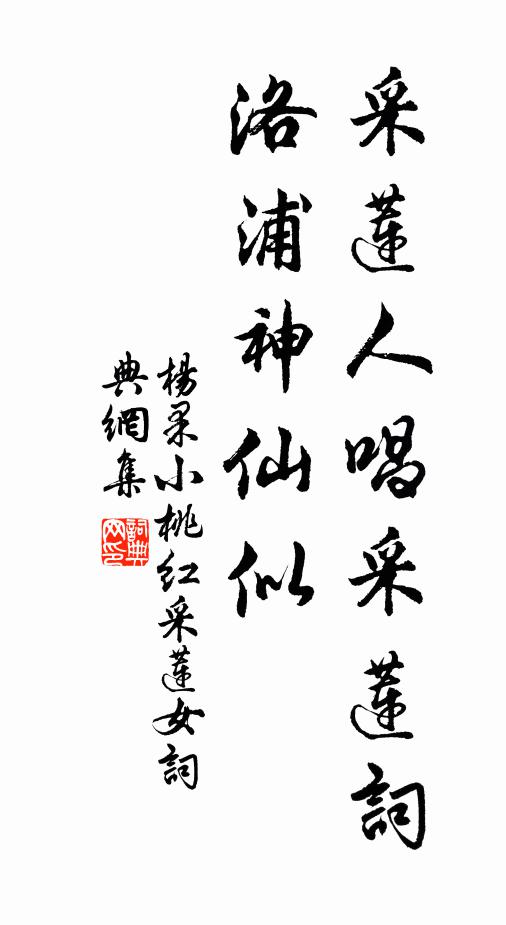 采蓮人唱采蓮詞
洛浦神仙似
楊果小桃紅采蓮女詞
典網集
詞典
网印